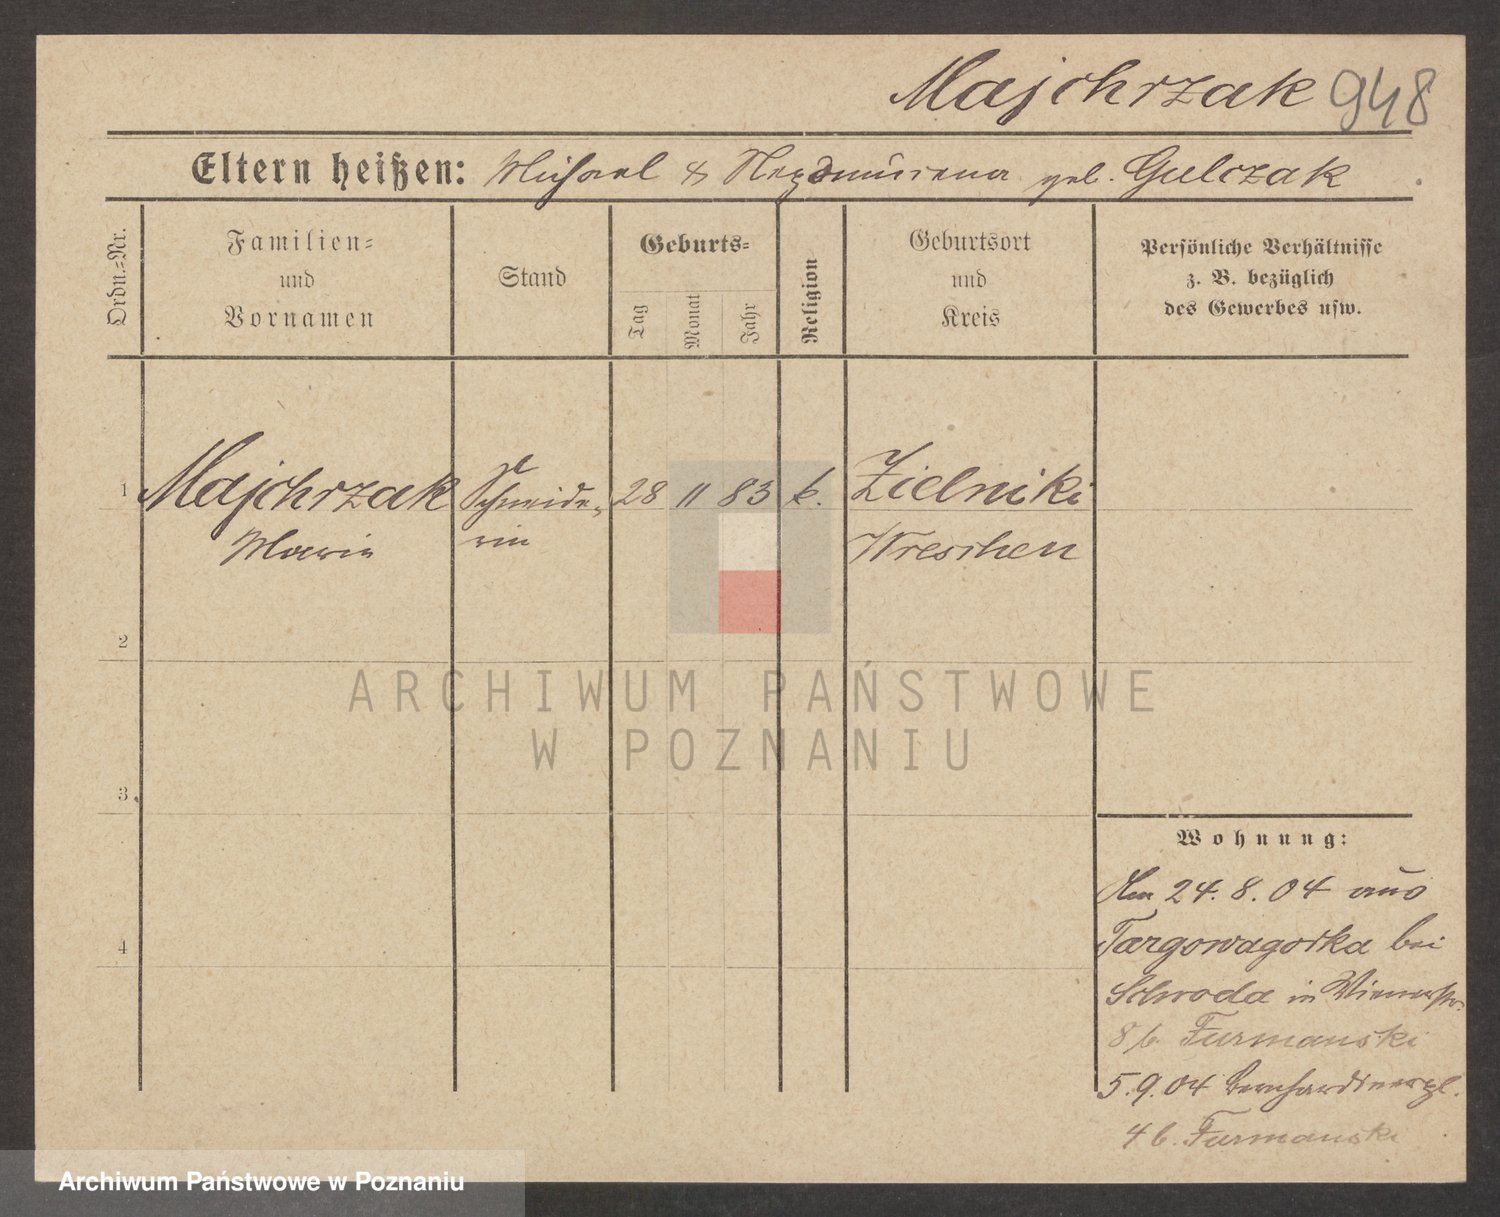 Majchrzak 948
Eltern heißen: Michael & gel. Gulczak
Ordn.-Nr.
Familien-
und
Vornamen
Stand
Geburts-
Tag
Monat
Jahr
Religion
Geburtsort
und
Kreis
Persönliche Verhältnisse
z. B. bezüglich
des Gewerbes usw.
1 Majchrzak Schneide- 28 11 83 k. Zielniki
Marie rin Wreschen
2
3
4
Wohnung:
Am 24. 8. 04 aus
Targowagorka bei
Schroda in Wienerstr.
8 b. Furmanski
5. 9. 04 Bernhardinerpl.
4 b. Furmanski
ARCHIWUM PAŃSTWOWE
W POZNANIU
Archiwum Państwowe w Poznaniu